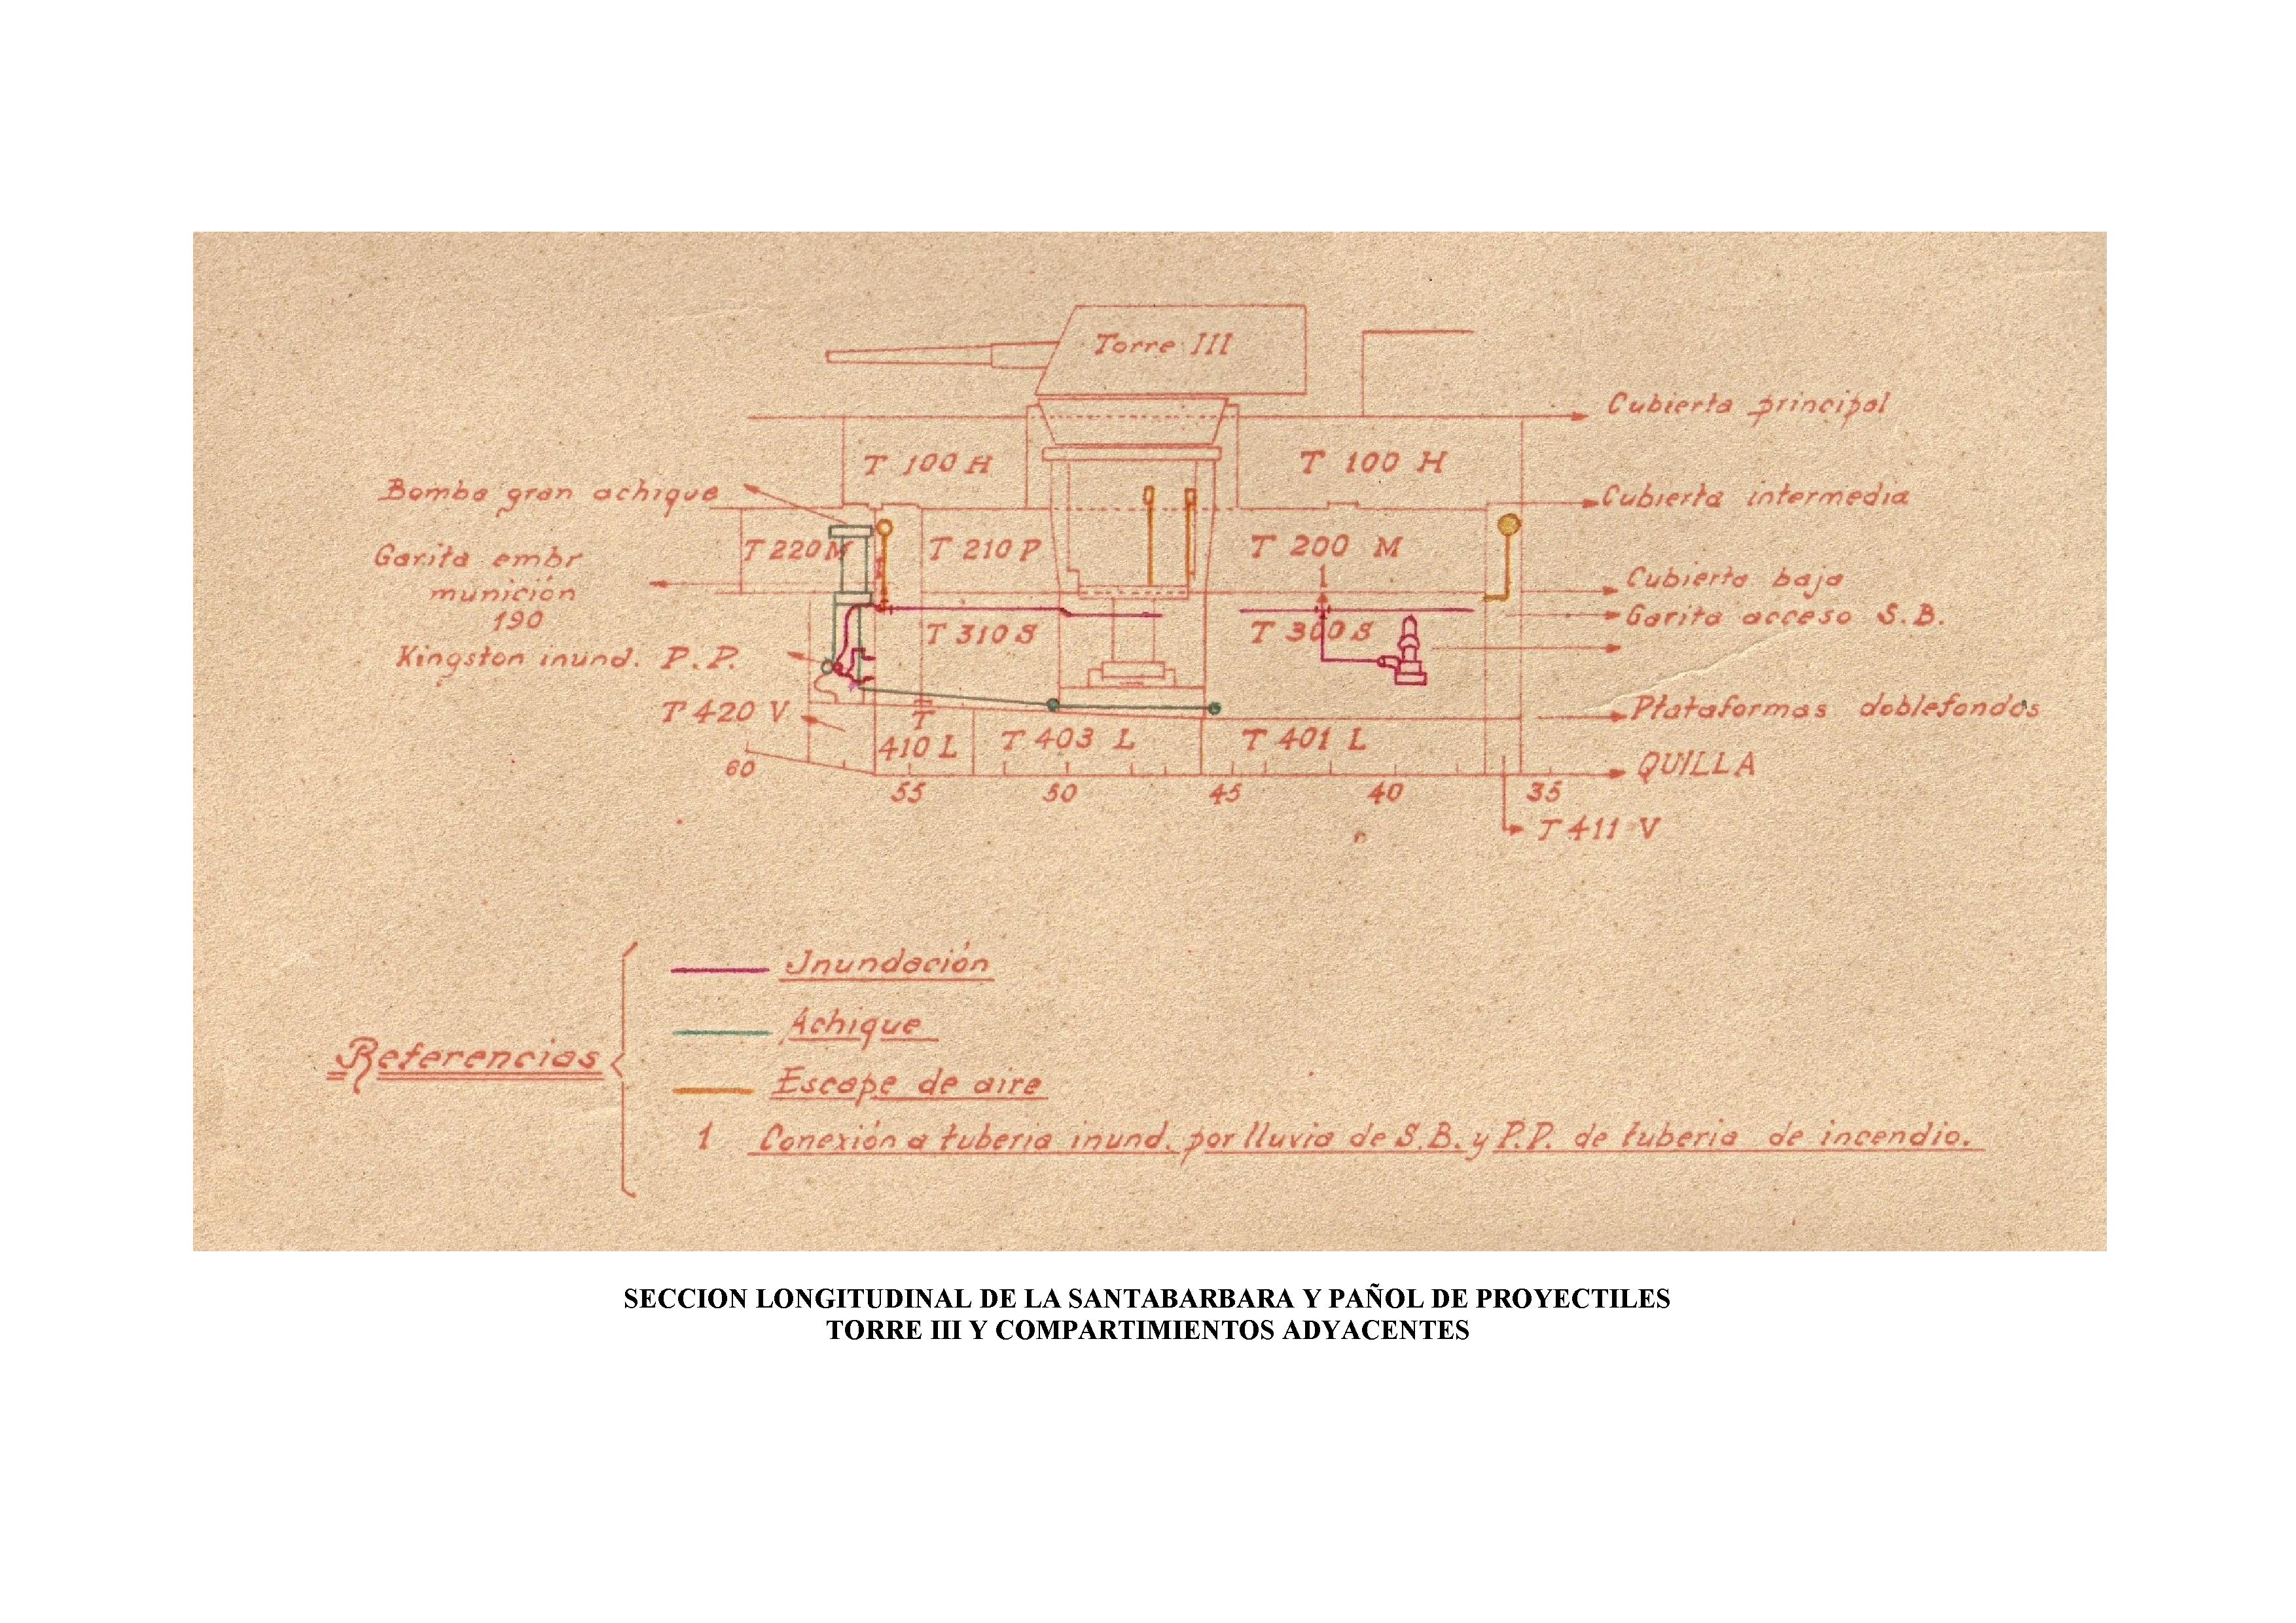 Torre III
Cubierta principal
T 100 H
T 100 H
Bomba gran achique
Cubierta intermedia
T 220 M
T 210 P
T 200 M
Garita embr
munición
190
1
Cubierta baja
Garita acceso S.B.
T 310 S
T 300 S
Kingston inund. P.P.
T 420 V
Plataformas doblefondos
T
410 L
T 403 L
T 401 L
QUILLA
60
55
50
45
40
35
T 411 V
Referencias
Inundación
Achique
Escape de aire
1 Conexión a tuberia inund. por lluvia de S.B. y P.P. de tuberia de incendio.
SECCION LONGITUDINAL DE LA SANTABARBARA Y PAÑOL DE PROYECTILES
TORRE III Y COMPARTIMIENTOS ADYACENTES